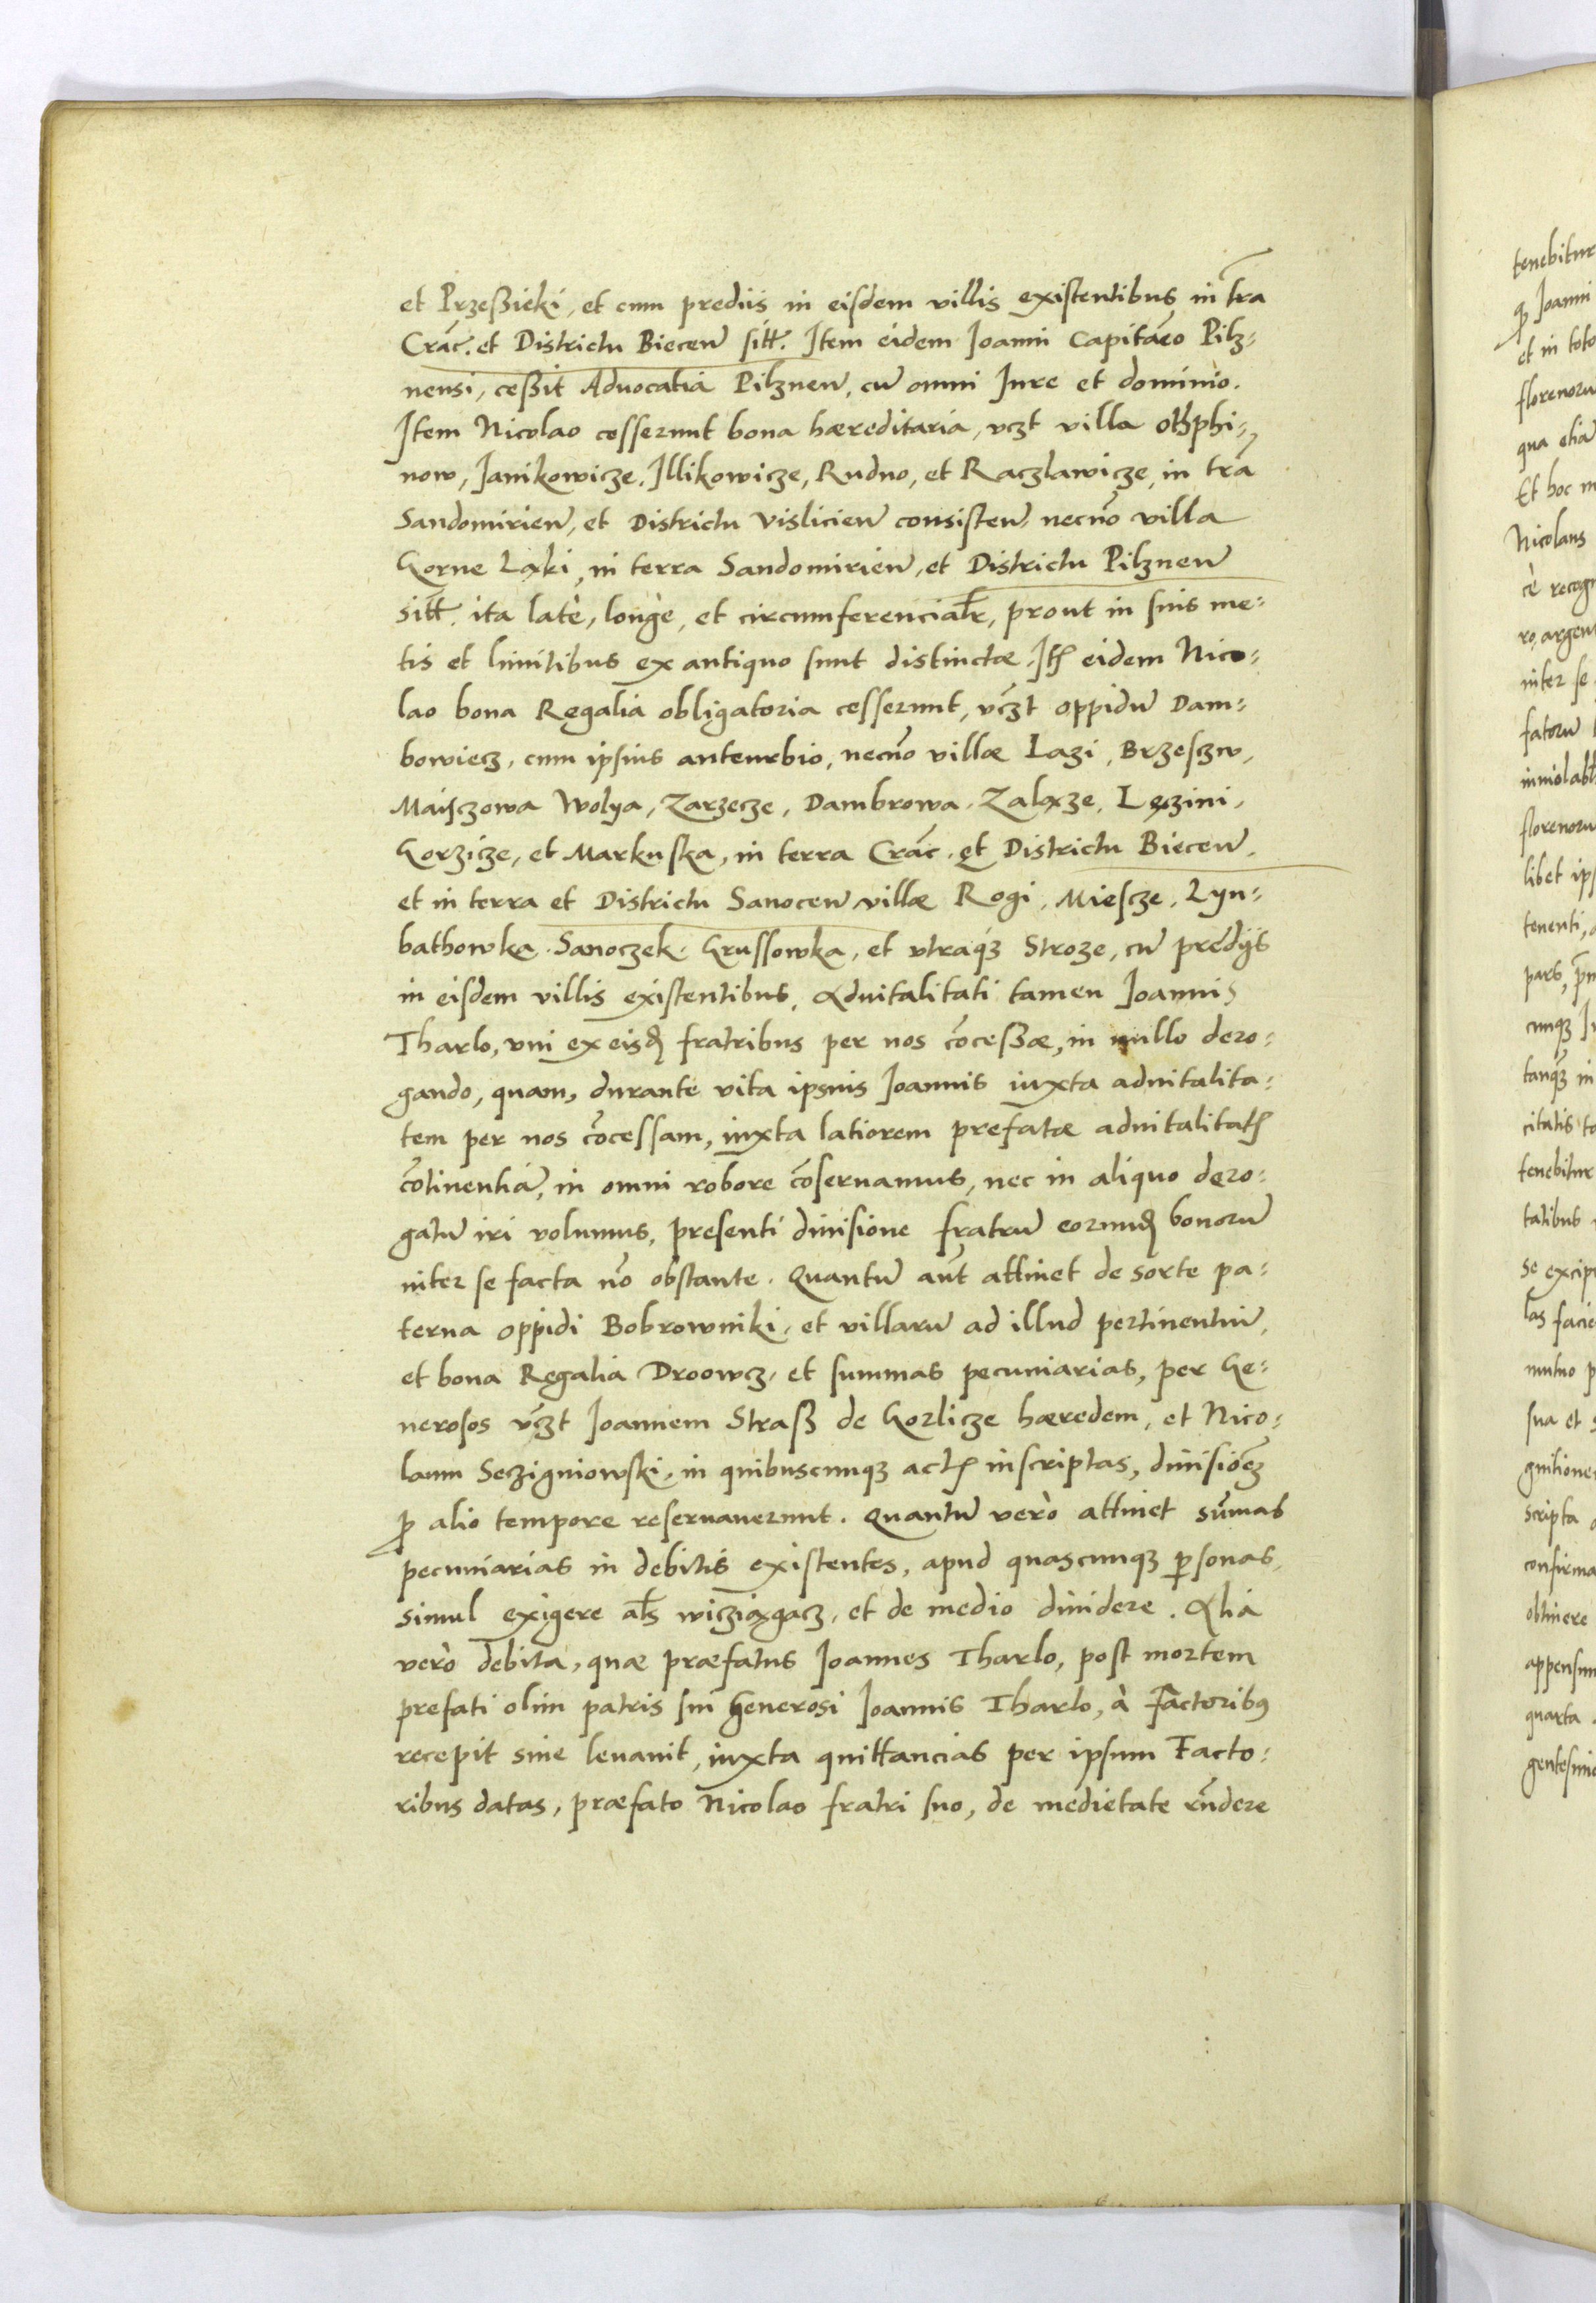 et Przeßieki, et cum prediis in eisdem villis existentibus in t̃ra
Crac̃. et Districtu Biecen̄ sitt̃. Item eidem Joanni Capitãeo Pilz=
nensi, ceßit Advocatia Pilznen̄, cū omni Jure et dominio.
Item Nicolao cesserunt bona hæreditaria, vczt villa Othphi=
now, Janikowicze, Illikowicze, Rudno, et Raczlawicze, in trã
Sandomirien̄, et Districtu Vislicien̄ consisten̄, necnõ villa
Gorne Ląki, in terra Sandomirien̄, et Districtu Pilznen̄
sitt̃. ita latè, longè, et circumferencialr̃, prout in suis me=
tis et limitibus ex antiquo sunt distinctæ. Itẽ eidem Nico=
lao bona Regalia obligatoria cesserunt, vc̃zt oppidū Dam=
bowiecz, cum ipsius anteurbio, necnõ villæ Lazi, Brzesczw,
Maijczowa Wolya, Zarzecze, Dambrowa, Zalącze, Lęczini,
Gorzicze, et Markuska, in terra Crac̃. et Districtu Biecen̄,
et in terra et Districtu Sanocen̄ villæ Rogi, Miescze, Lyu=
bathowka, Sanoczek, Grussowka, et vtraqʒ Stroze, cū predijs
in eisdem villis existentibus, Aduitalitati tamen Joannis
Tharlo, vni ex eisdẽ fratribus per nos cõceßæ, in nullo dero=
gando, quam, durante vita ipsius Joannis iuxta aduitalita=
tem per nos cõcessam, iuxta latiorem prefatæ aduitalitatẽ
cõtinentiã, in omni robore cõseruamus, nec in aliquo dero=
gatū iri volumus, presenti diuisione fratrū eorundẽ bonorū
inter se facta nõ obstante. Quantū aũt attinet de sorte pa=
terna oppidi Bobrowniki, et villarū ad illud pertinentiū,
et bona Regalia Droowcz, et summas pecuniarias, per Ge=
nerosos vc̃zt Joannem Straß de Gorlicze hæredem, et Nico=
laum Seczigniowski, in quibuscunqʒ actẽ inscriptas, diuisiõeʒ
ꝓ alio tempore reseruauerunt. Quantū verò attinet sũmas
pecuniarias in debitis existentes, apud quascunqʒ ꝑsonas,
simul exigere al̃s wicziągacz, et de medio diuidere. Alia
verò debita, quæ præfatus Joannes Tharlo, post mortem
prefati olim patris sui Generosi Joannis Tharlo, à Factoribꝰ
recepit siue leuauit, iuxta quittancias per ipsum Facto=
ribus datas, præfato Nicolao fratri suo, de medietate rñdere
tenebitur
ꝓ Joanni
et in toto
florenoru
qua etiã
Et hoc
Nicolaus
cè
ro, argen
inter se
fatorū
inuiolabl
florenoru
libet ips
tenenti,
pars,
cunqʒ
tanqʒ in
citatis
tenebitur
tatibus
se excip
las facie
mutuo p
sua et
gnitione
scripta
confirma
obtinere
appensum
quarta
gentesimo